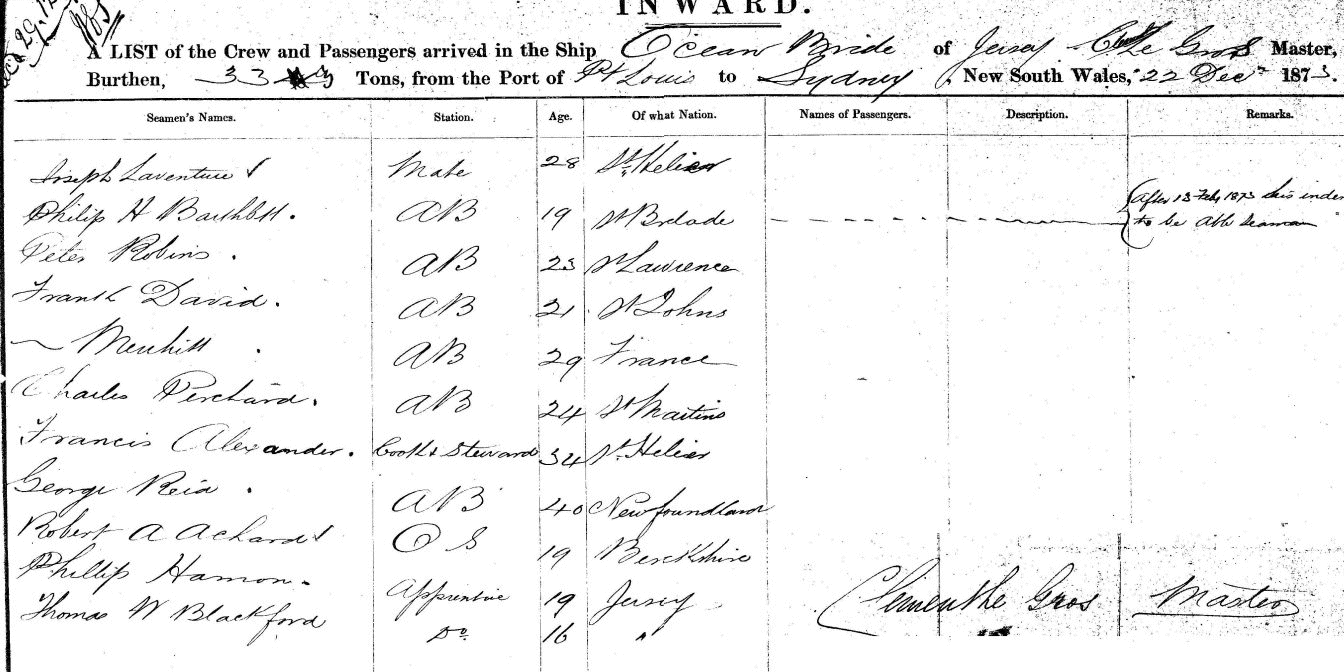 INWARD.
A LIST of the Crew and Passengers arrived in the Ship Ocean Bride of Jersey C Le Gros Master,
Burthen, 33 Tons, from the Port of Pt Louis to Sydney, New South Wales, 22 Decr 1873.
Seamen's Names. Station. Age. Of what Nation. Names of Passengers. Description. Remarks.
Joseph Laventure Mate 28 St. Helier
Philip H Barthbtt. AB 19 St Brelade (After 13 Feby 1873 his inden
to be Able Seaman
Peter Robins. AB 23 St Lawrence
Frank David. AB 21 St Johns
— AB 29 France
Charles Perchard. AB 24 St Martins
Francis Alexander. Cook & Steward 34 St. Helier
George Reid. AB 40 Newfoundland
Robert A Achard OS 19 Berckshire
Phillip Hamon. Apprentice 19 Jersey
Thomas W Blackford Do. 16 "
Clement Le Gros Master